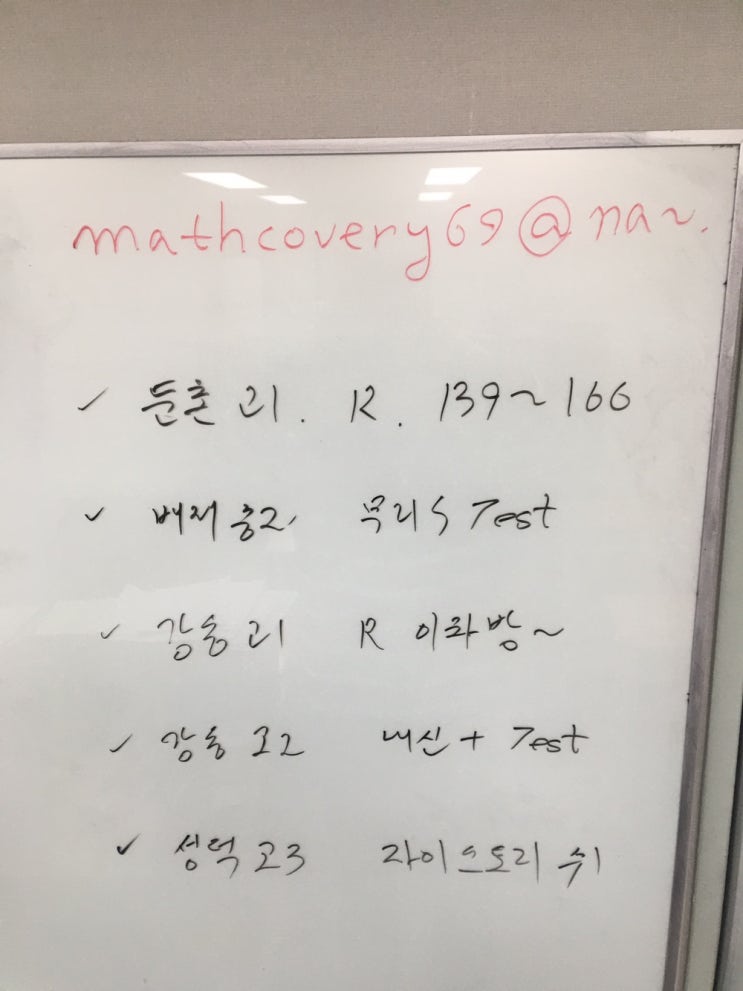 mathcovery69@na~.
✓ 둔촌고1. R. 139~166
✓ 배재중2, Test
✓ 강동고1 R 이차방~
✓ 강동고2 내신 + Test
✓ 성덕고3 자이스토리 수1